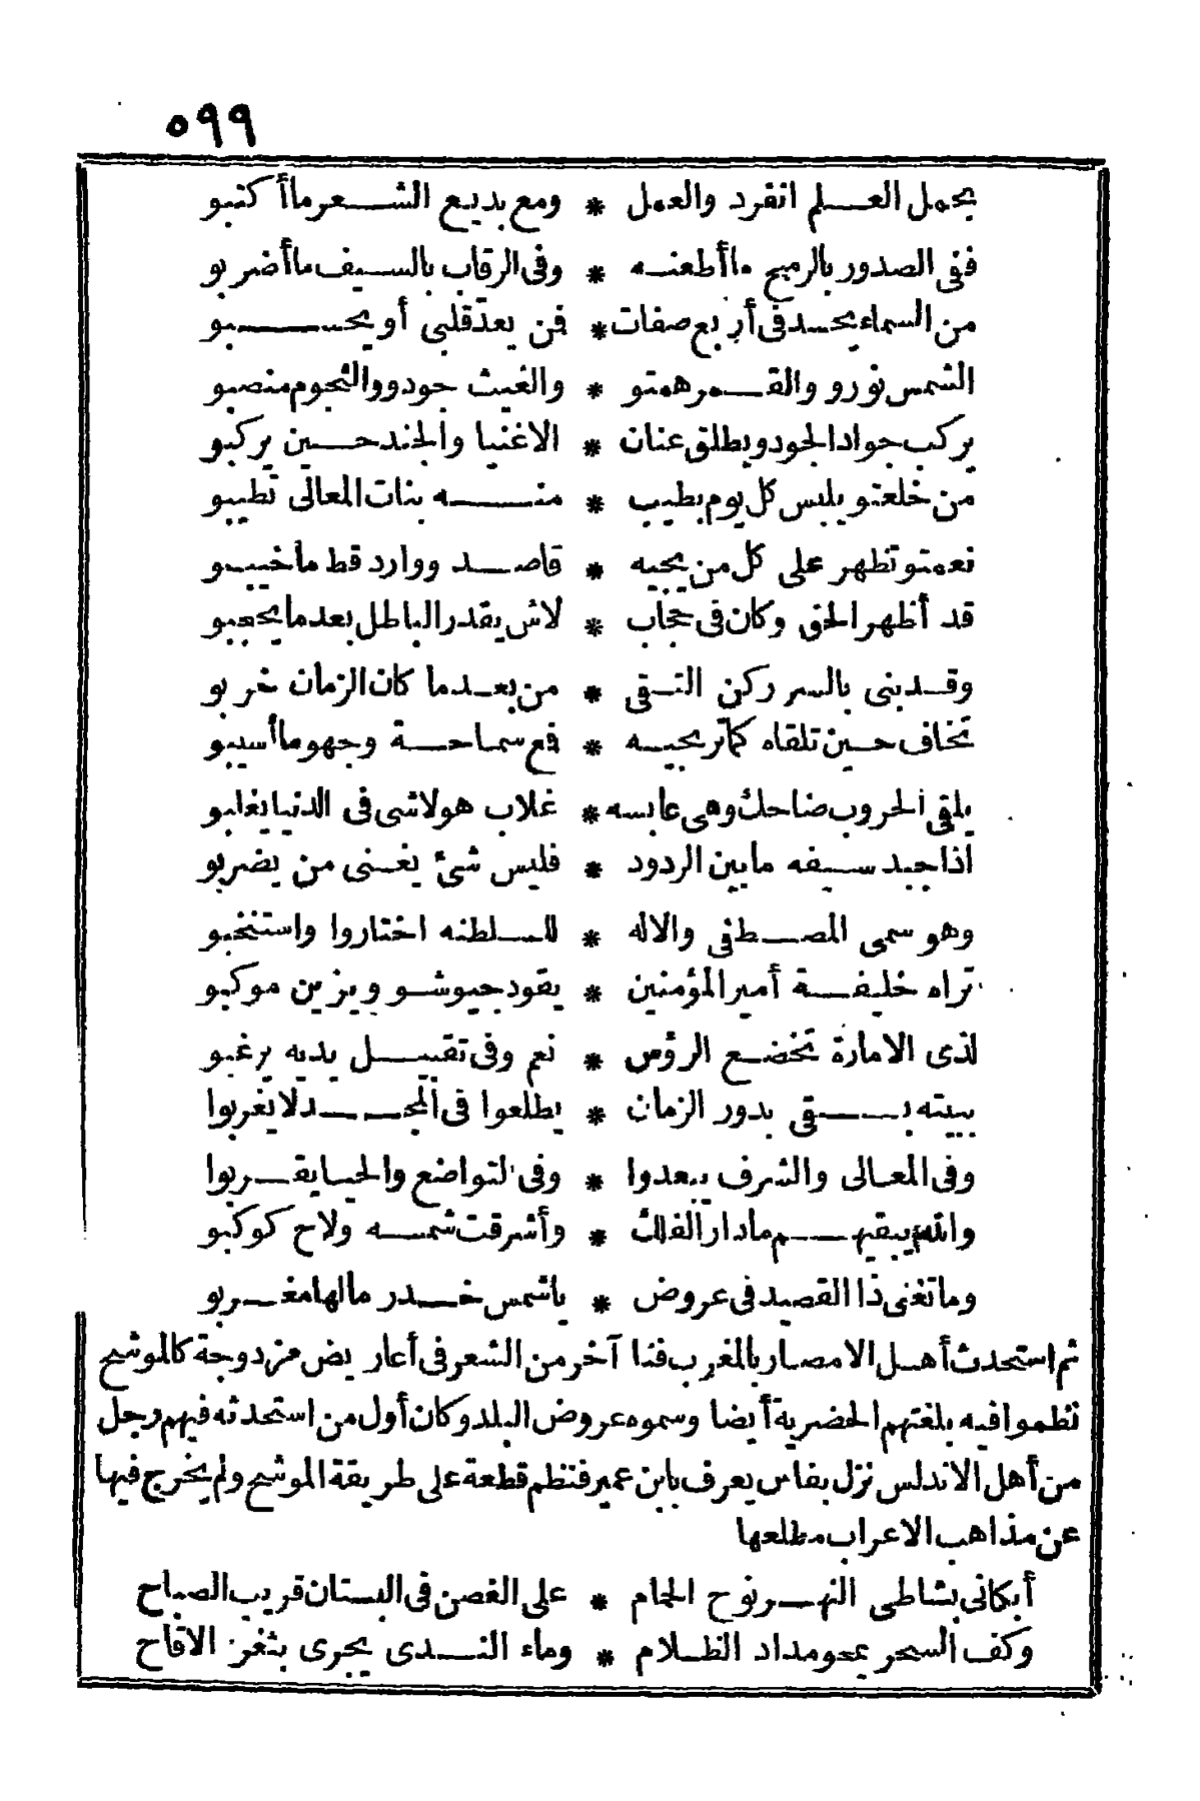 ٥٩٩
بجمل العلم انفرد والعمل * ومع بديع الشعر ما أكتبو
ففى الصدور بالرمح ما أطعنه * وفى الرقاب بالسيف ما أضربو
من السماء يحسد فى أربع صفات * فمن يعد قلبى أو يحسبو
الشمس نورو والقمر همتو * والغيث جودو والنجوم منصبو
يركب جواد الجود ويطلق عنان * الاغنيا والجند حين يركبو
من خلعتو يلبس كل يوم بطيب * منه بنات المعالى تطيبو
نعمتو تظهر على كل من يجيه * قاصد ووارد قط ما خيبو
قد أظهر الحق وكان فى حجاب * لاش يقدر الباطل بعد ما يحجبو
وقد بنى بالسر ركن التقى * من بعد ما كان الزمان خربو
تخاف حين تلقاه كما ترتجيه * فمع سماحة وجهو ما أسيبو
يلقى الحروب ضاحك وهى عابسه * غلاب هو لاشى فى الدنيا يغلبو
اذا جبد سيفه ما بين الردود * فليس شئ يغنى من يضربو
وهو سمى المصطفى والاله * للسلطنه اختاروا واستنخبو
تراه خليفة أمير المؤمنين * يقود جيوشو ويزين موكبو
لذى الامارة تخضع الرؤس * نعم وفى تقبيل يديه يرغبو
بيته بقى بدور الزمان * يطلعوا فى المجد لا يغربوا
وفى المعالى والشرف يبعدوا * وفى التواضع والحيا يقربوا
والله يبقيهم ما دار الفلك * وأشرقت شمسه ولاح كوكبو
وما تغنى ذا القصيد فى عروض * يا شمس خدر ما لها مغربو
ثم استحدث أهل الامصار بالمغرب فنا آخر من الشعر فى أعاريض مزدوجة كالموشح
نظموا فيه بلغتهم الحضرية أيضا وسموه عروض البلد وكان أول من استحدثه فيهم رجل
من أهل الاندلس نزل بفاس يعرف بابن عمير فنظم قطعة على طريقة الموشح ولم يخرج فيها
عن مذاهب الاعراب مطلعها
أبكانى بشاطى النهر نوح الحمام * على الغصن فى البستان قريب الصباح
وكف السحر يمحو مداد الظلام * وماء الندى يجرى بثغر الاقاح